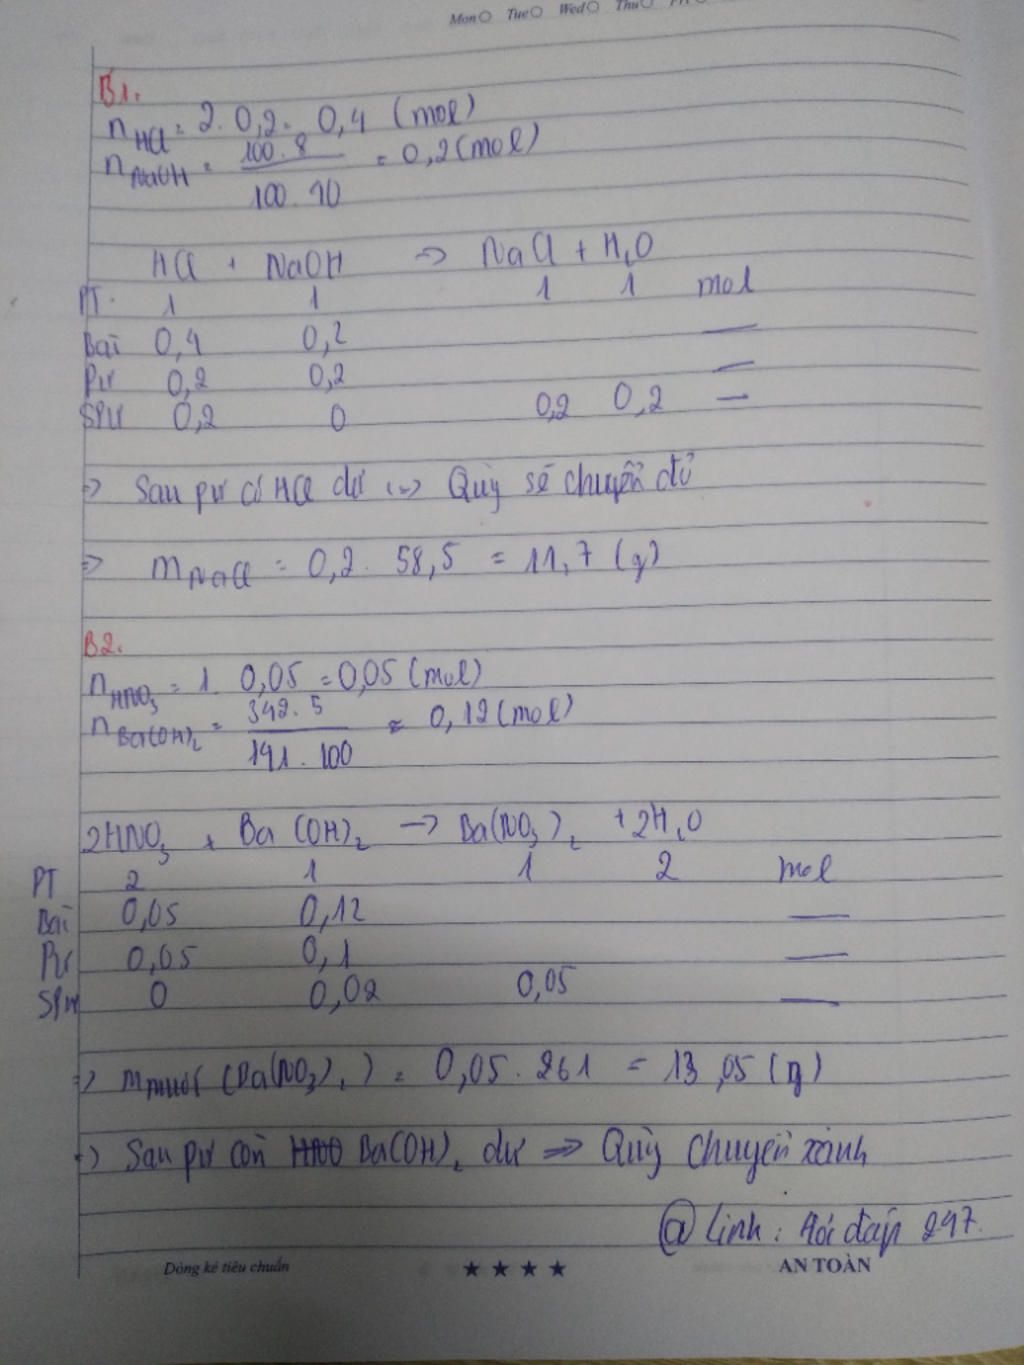 Mon Tue Wed Thu
B1.
n HCl = 2. 0,2 = 0,4 (mol)
n NaOH = 100.8 / 100.40 = 0,2 (mol)
HCl + NaOH → NaCl + H₂O
PT 1 1 1 1 mol
Bài 0,4 0,2 —
Pư 0,2 0,2 —
SPƯ 0,2 0 0,2 0,2 —
=> Sau pư có HCl dư => Quỳ sẽ chuyển đỏ
=> m NaCl = 0,2. 58,5 = 11,7 (g)
B2.
n HNO₃ = 1. 0,05 = 0,05 (mol)
n Ba(OH)₂ = 342.5 / 171.100 = 0,12 (mol)
2HNO₃ + Ba(OH)₂ → Ba(NO₃)₂ + 2H₂O
PT 2 1 1 2 mol
Bài 0,05 0,12 —
Pư 0,05 0,1 —
SPư 0 0,02 0,05 —
=> m muối (Ba(NO₃)₂) = 0,05. 261 = 13,05 (g)
=> Sau pư còn Ba(OH)₂ dư => Quỳ chuyển xanh
@ Linh: Hỏi đáp 247.
Dòng kẻ tiêu chuẩn ★ ★ ★ ★ AN TOÀN